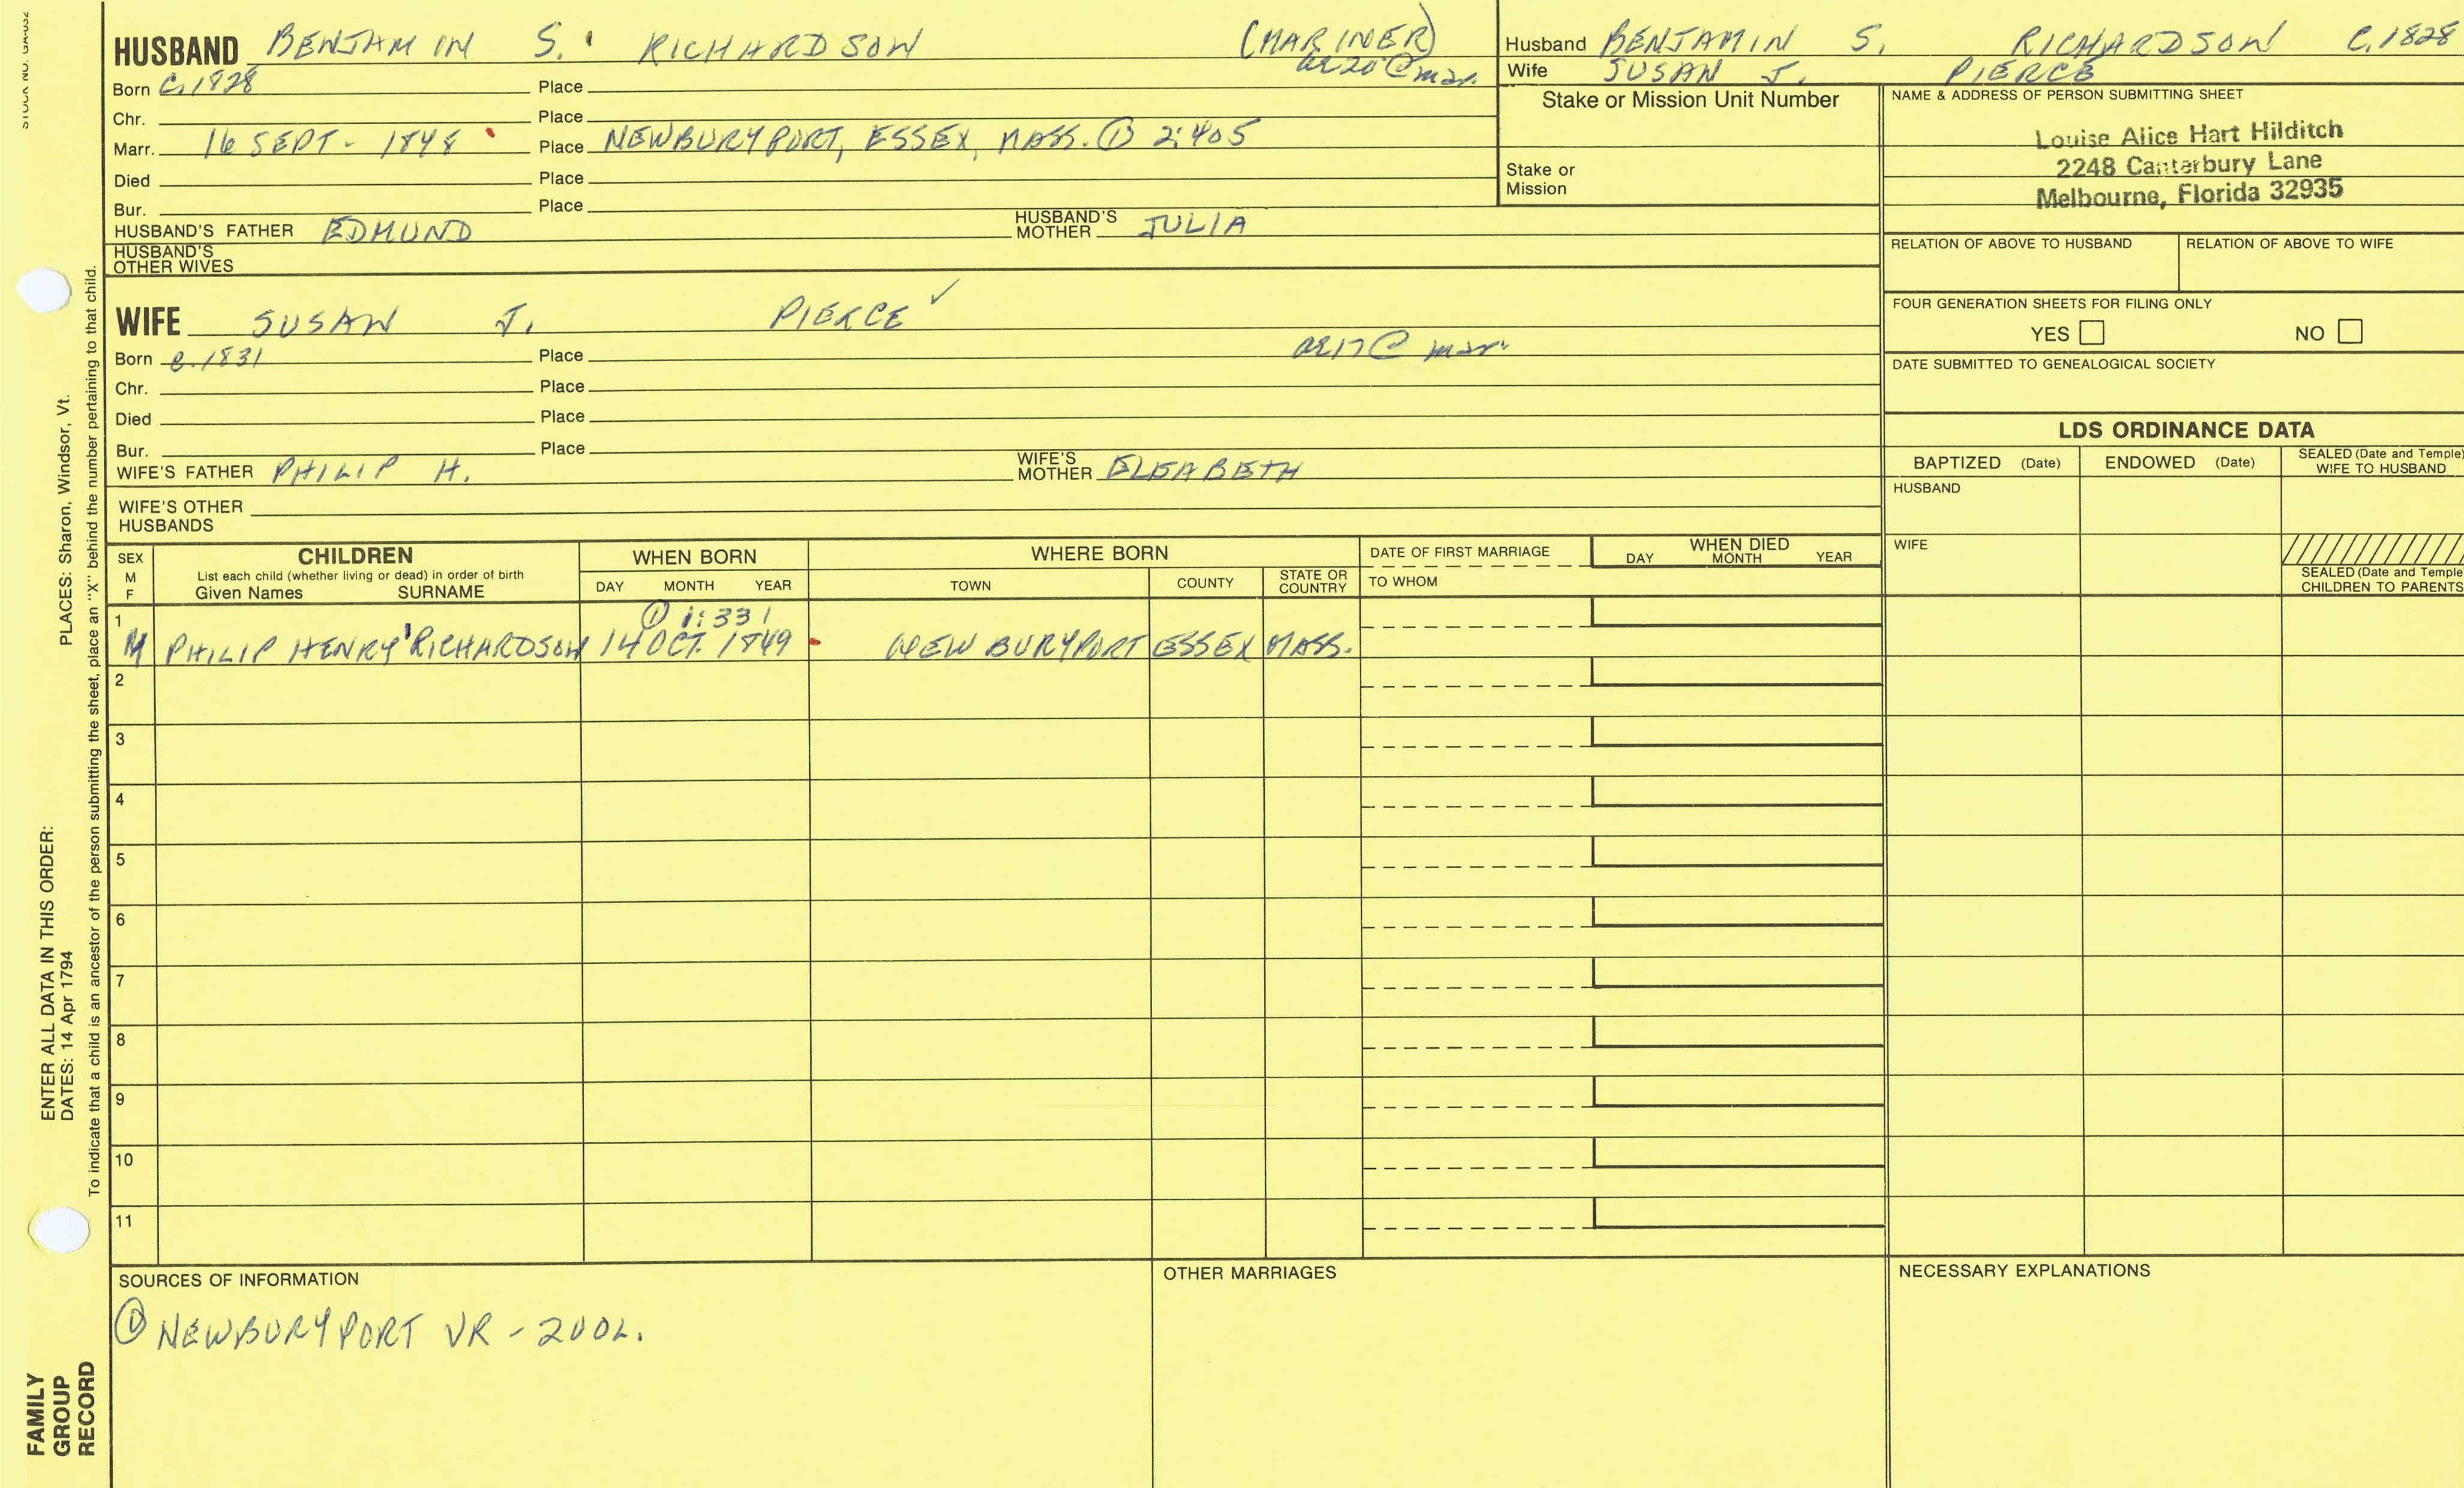 STOCK NO. GA-032
HUSBAND BENJAMIN S. RICHARDSON (MARINER)
Born C.1828 Place ae 20 @ mar.
Chr. Place
Marr. 16 SEPT - 1848 Place NEWBURYPORT, ESSEX, MASS. ① 2:405
Died Place
Bur. Place
HUSBAND'S FATHER EDMUND HUSBAND'S MOTHER JULIA
HUSBAND'S OTHER WIVES
WIFE SUSAN J. PIERCE ✓
Born c.1831 Place ae 17 @ mar.
Chr. Place
Died Place
Bur. Place
WIFE'S FATHER PHILIP H. WIFE'S MOTHER ELSABETH
WIFE'S OTHER HUSBANDS
Husband BENJAMIN S. RICHARDSON C.1828
Wife SUSAN J. PIERCE
Stake or Mission Unit Number
Stake or Mission
NAME & ADDRESS OF PERSON SUBMITTING SHEET
Louise Alice Hart Hilditch
2248 Canterbury Lane
Melbourne, Florida 32935
RELATION OF ABOVE TO HUSBAND RELATION OF ABOVE TO WIFE
FOUR GENERATION SHEETS FOR FILING ONLY
YES NO
DATE SUBMITTED TO GENEALOGICAL SOCIETY
LDS ORDINANCE DATA
BAPTIZED (Date) ENDOWED (Date) SEALED (Date and Temple) WIFE TO HUSBAND
HUSBAND
WIFE
SEALED (Date and Temple
CHILDREN TO PARENTS
SEX M F CHILDREN WHEN BORN WHERE BORN DATE OF FIRST MARRIAGE WHEN DIED
List each child (whether living or dead) in order of birth
Given Names SURNAME DAY MONTH YEAR TOWN COUNTY STATE OR COUNTRY TO WHOM DAY MONTH YEAR
① 1:331
1 M PHILIP HENRY RICHARDSON 14 OCT. 1849 NEWBURYPORT ESSEX MASS.
2
3
4
5
6
7
8
9
10
11
SOURCES OF INFORMATION OTHER MARRIAGES NECESSARY EXPLANATIONS
① NEWBURYPORT VR - 2 VOL.
ENTER ALL DATA IN THIS ORDER:
DATES: 14 Apr 1794 PLACES: Sharon, Windsor, Vt.
To indicate that a child is an ancestor of the person submitting the sheet, place an "X" behind the number pertaining to that child.
FAMILY
GROUP
RECORD